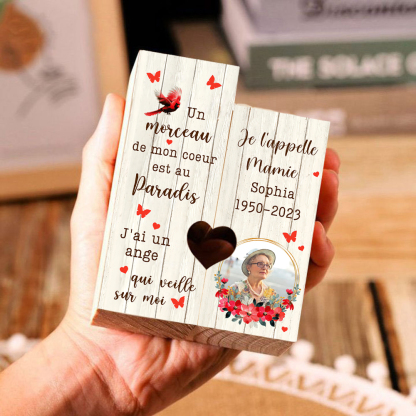 THE SOLACE O
Un
morceau
de mon coeur
est au
Paradis
J'ai un
ange
qui veille
sur moi
Je l'appelle
Mamie
Sophia
1950-2023